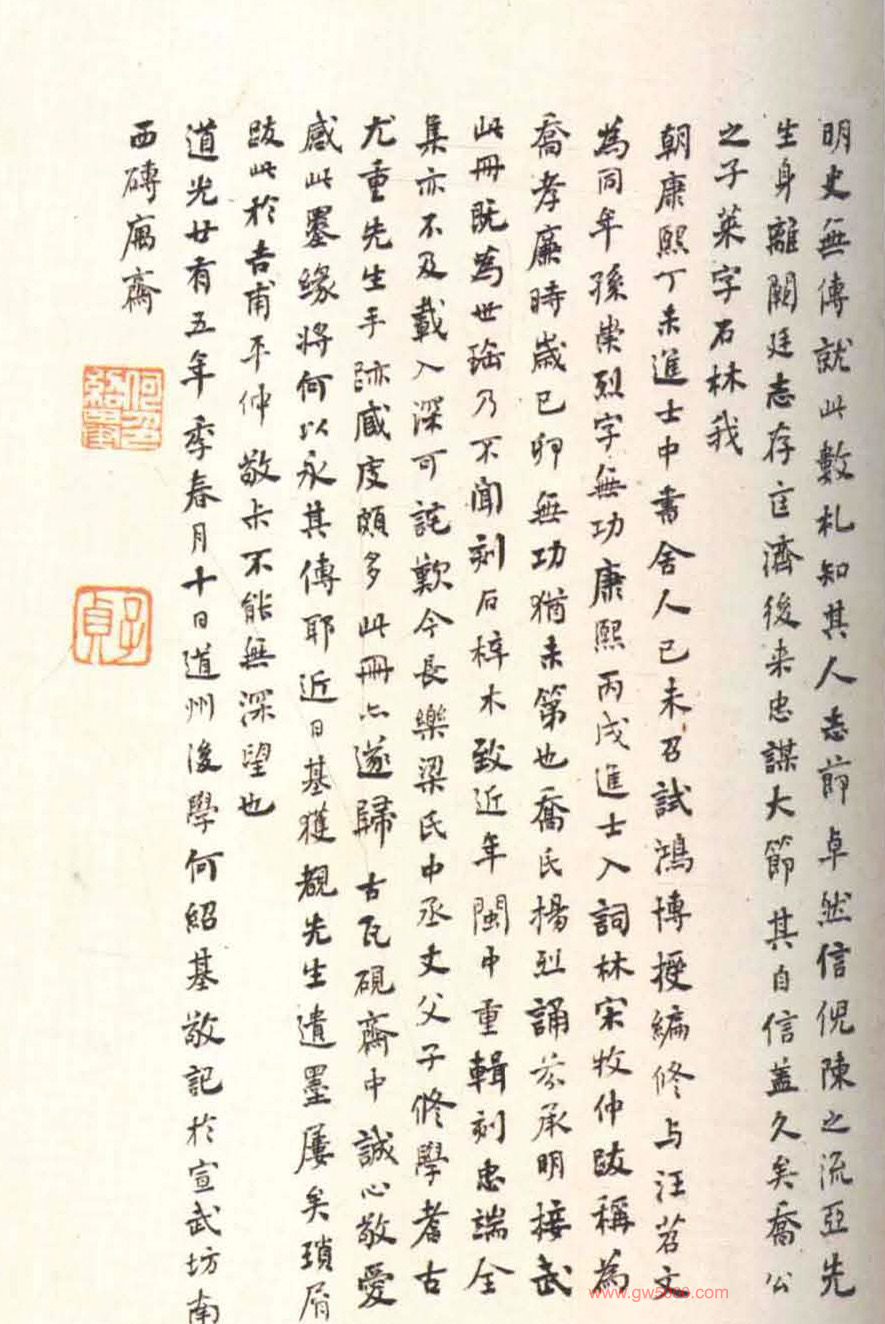 明史無傳就此數札知其人志節卓然信倪陳之流亞先
生身離闕廷志存匡濟後来忠謀大節其自信蓋久矣喬公
之子萊字石林我
朝康熙丁未進士中書舍人己未召試鴻博授編修与汪苕文
為同年孫崇烈字無功康熙丙戌進士入詞林宋牧仲跋稱為
喬孝廉時歲己卯無功猶未第也喬氏揚烈誦芬承明接武
此冊既為世珤乃不聞刻石梓木致近年閩中重輯刻忠端全
集亦不及載入深可詫歎今長樂梁氏中丞丈父子修學耆古
尤重先生手跡咸庋頗多此冊亦遂歸古瓦硯齋中誠心敬愛
感此墨緣將何以永其傳耶近日基獲觀先生遺墨屢矣瑣屑
跋此於吉甫平仲敬卡不能無深望也
道光廿有五年季春月十日道州後學何紹基敬記於宣武坊南
西磚寓齋
何紹基
子貞
www.gw5000.com